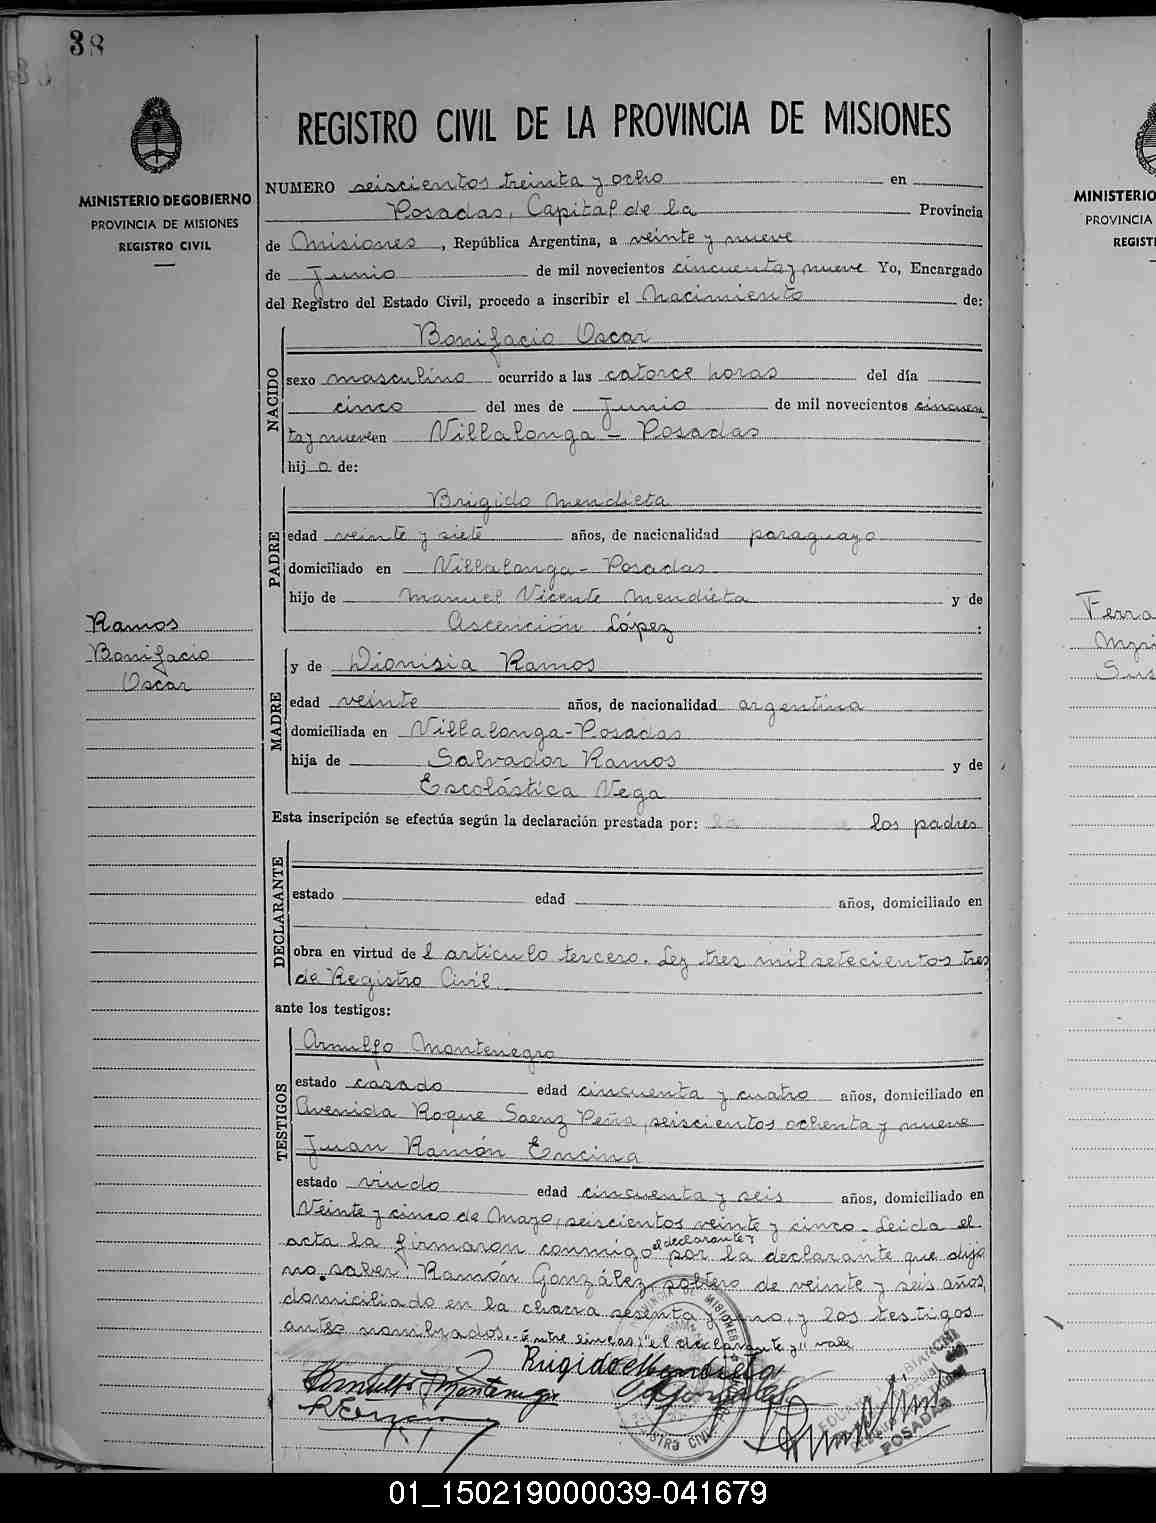 38
REGISTRO CIVIL DE LA PROVINCIA DE MISIONES
MINISTERIO DE GOBIERNO
PROVINCIA DE MISIONES
REGISTRO CIVIL
NUMERO seiscientos treinta y ocho en
Posadas, Capital de la Provincia
de Misiones, República Argentina, a veinte y nueve
de Junio de mil novecientos cincuenta y nueve Yo, Encargado
del Registro del Estado Civil, procedo a inscribir el Nacimiento de:
NACIDO
Bonifacio Oscar
sexo masculino ocurrido a las catorce horas del día
cinco del mes de Junio de mil novecientos cincuen
ta y nueve en Villalonga - Posadas
hij o de:
PADRE
Brigido Mendieta
edad veinte y siete años, de nacionalidad paraguayo
domiciliado en Villalonga - Posadas
hijo de Manuel Vicente Mendieta y de
Ascención López :
Ramos
Bonifacio
Oscar
MADRE
y de Dionisia Ramos
edad veinte años, de nacionalidad argentina
domiciliada en Villalonga - Posadas
hija de Salvador Ramos y de
Escolástica Vega
Esta inscripción se efectúa según la declaración prestada por: los padres
DECLARANTE
estado edad años, domiciliado en
obra en virtud de l artículo tercero. Ley tres mil setecientos tres
de Registro Civil.
ante los testigos:
TESTIGOS
Arnulfo Montenegro
estado casado edad cincuenta y cuatro años, domiciliado en
Avenida Roque Saenz Peña, seiscientos ochenta y nueve
Juan Ramón Encina
estado viudo edad cincuenta y seis años, domiciliado en
Veinte y cinco de Mayo, seiscientos veinte y cinco - Leida el
acta la firmaron conmigo el declarante y por la declarante que dijo
no saber Ramón González, soltero de veinte y seis años,
domiciliado en la chacra sesenta y uno, y los testigos
antes nombrados. - Entre lineas: "el declarante y" vale
Brigido Mendieta
Arnulfo Montenegro
REGISTRO CIVIL
MISIONES
POSADAS
MINISTERIO
PROVINCIA
REGIST
Ferra
01_150219000039-041679